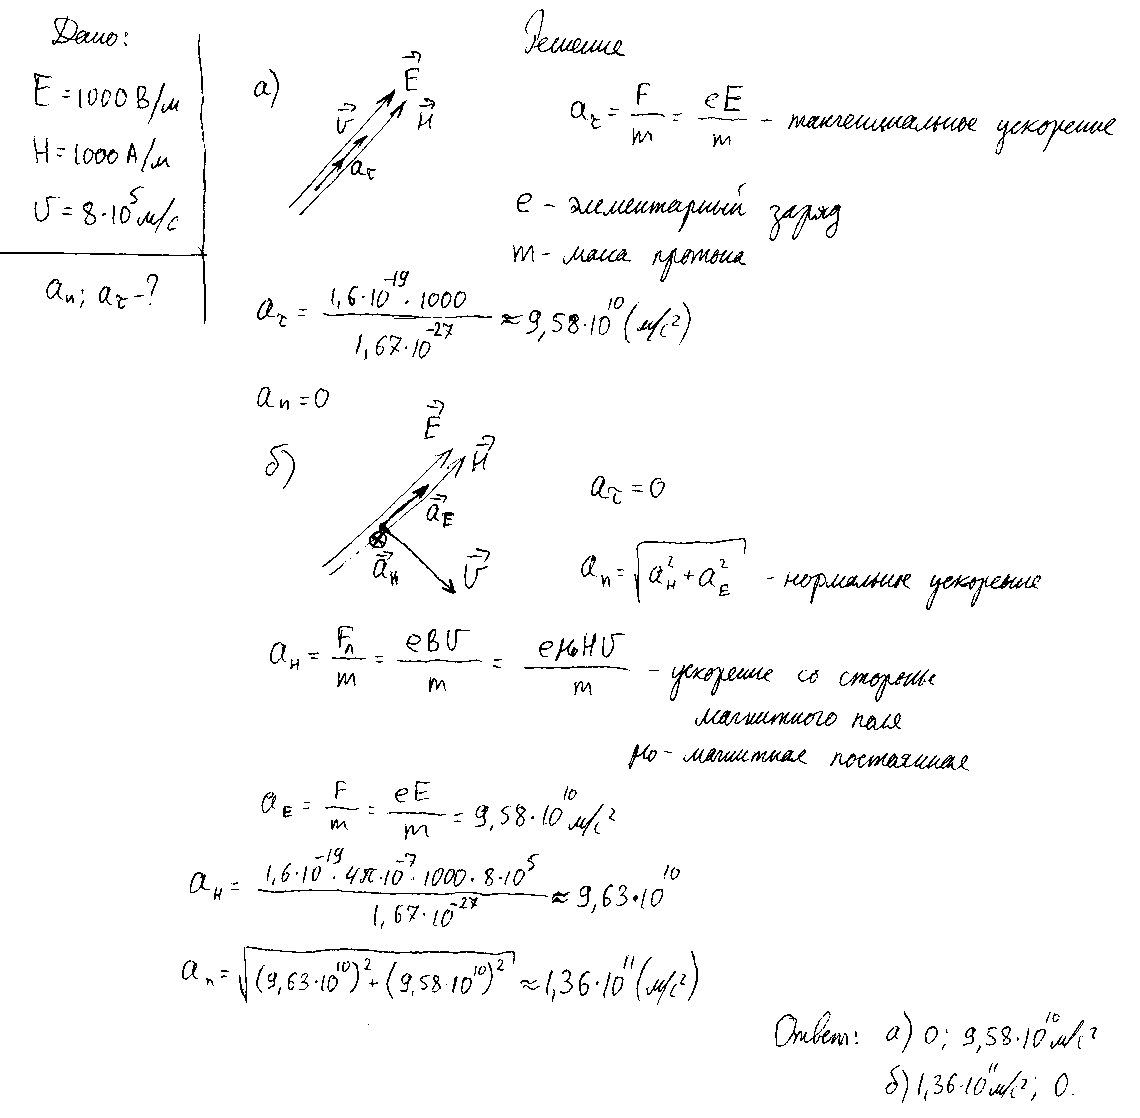 Дано:
E = 1000 В/м
H = 1000 А/м
υ = 8·10⁵ м/с
aₙ; a_τ - ?
Решение
а)
E⃗
υ⃗
H⃗
a_τ
a_τ = F/m = eE/m - тангенциальное ускорение
e - элементарный заряд
m - масса протона
a_τ = (1,6·10⁻¹⁹·1000)/(1,67·10⁻²⁷) ≈ 9,58·10¹⁰ (м/с²)
aₙ = 0
б)
E⃗
H⃗
a⃗_E
a⃗_H
υ⃗
a_τ = 0
aₙ = √(a_H² + a_E²) - нормальное ускорение
a_H = F_л/m = eBυ/m = eμ₀Hυ/m - ускорение со стороны
магнитного поля
μ₀ - магнитная постоянная
a_E = F/m = eE/m = 9,58·10¹⁰ м/с²
a_H = (1,6·10⁻¹⁹·4π·10⁻⁷·1000·8·10⁵)/(1,67·10⁻²⁷) ≈ 9,63·10¹⁰
aₙ = √((9,63·10¹⁰)² + (9,58·10¹⁰)²) ≈ 1,36·10¹¹ (м/с²)
Ответ: а) 0; 9,58·10¹⁰ м/с²
б) 1,36·10¹¹ м/с²; 0.